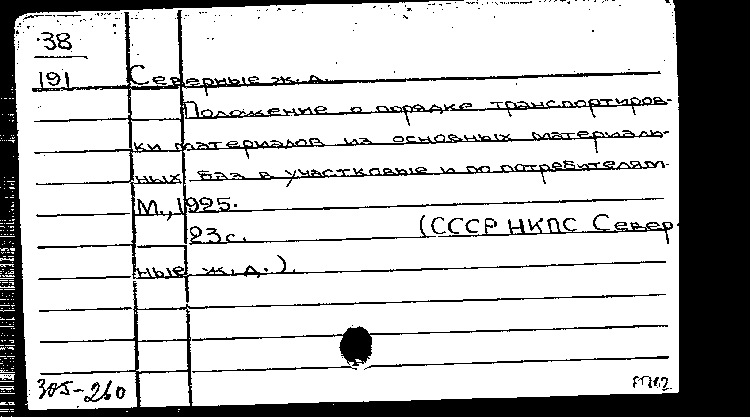 38
191 Северные ж.д.
Положение о порядке транспортиров-
ки материалов из основных материаль-
ных баз в участковые и по потребителям
М., 1925.
23с. (СССР НКПС Север-
ные ж.д.).
305-260